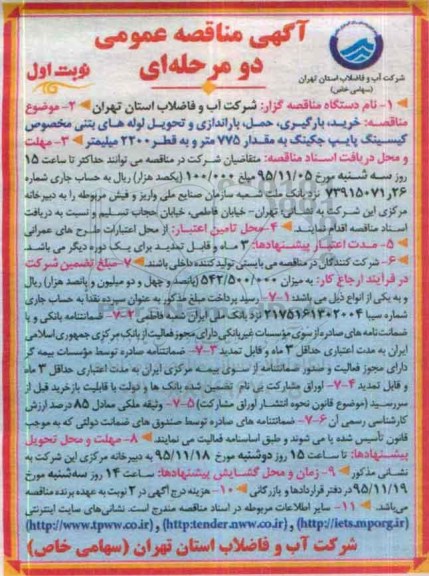 آگهی مناقصه عمومی
دو مرحله‌ای
نوبت اول
شرکت آب و فاضلاب استان تهران
(سهامی خاص)
۱- نام دستگاه مناقصه گزار: شرکت آب و فاضلاب استان تهران ۲- موضوع
مناقصه: خرید، بارگیری، حمل، باراندازی و تحویل لوله های بتنی مخصوص
کیسینگ پایپ جکینگ به مقدار ۷۷۵ متر و به قطر ۲۲۰۰ میلیمتر ۳- مهلت
و محل دریافت اسناد مناقصه: متقاضیان شرکت در مناقصه می توانند حداکثر تا ساعت ۱۵
روز سه شنبه مورخ ۹۵/۱۱/۰۵ مبلغ ۱۰۰/۰۰۰ (یکصد هزار) ریال به حساب جاری شماره
۲۶ر۷۳۹۱۵۰۷۱ نزد بانک ملت شعبه سازمان صنایع ملی واریز و فیش مربوطه را به دبیرخانه
مرکزی این شرکت به نشانی: تهران- خیابان فاطمی، خیابان حجاب تسلیم و نسبت به دریافت
اسناد مناقصه اقدام نمایند. ۴- محل تامین اعتبار: از محل اعتبارات طرح های عمرانی
۵- مدت اعتبار پیشنهادها: ۳ ماه و قابل تمدید برای یک دوره دیگر می باشد.
۶- شرکت کنندگان در مناقصه می بایستی تولید کننده داخلی باشند. ۷- مبلغ تضمین شرکت
در فرآیند ارجاع کار: به میزان ۵۴۲/۵۰۰/۰۰۰ (پانصد و چهل و دو میلیون و پانصد هزار) ریال
و به یکی از انواع ذیل می باشد: ۷-۱- رسید پرداخت مبلغ مذکور به عنوان سپرده نقدا به حساب جاری
شماره سیبا ۲۱۷۵۱۶۱۳۰۲۰۰۴ نزد بانک ملی ایران شعبه فاطمی ۷-۲- ضمانتنامه بانکی و یا
ضمانت نامه های صادره از سوی مؤسسات غیربانکی دارای مجوز فعالیت از بانک مرکزی جمهوری اسلامی
ایران به مدت اعتباری حداقل ۳ ماه و قابل تمدید ۷-۳- ضمانتنامه صادره توسط مؤسسات بیمه گر
دارای مجوز فعالیت و صدور ضمانتنامه از سوی بیمه مرکزی ایران به مدت اعتباری حداقل ۳ ماه
و قابل تمدید ۷-۴- اوراق مشارکت بی نام تضمین شده بانک ها و دولت با قابلیت بازخرید قبل از
سررسید (موضوع قانون نحوه انتشار اوراق مشارکت) ۷-۵- وثیقه ملکی معادل ۸۵ درصد ارزش
کارشناسی رسمی آن ۷-۶- ضمانتنامه های صادره توسط صندوق های ضمانت دولتی که به موجب
قانون تأسیس شده یا می شوند و طبق اساسنامه فعالیت می نمایند ۸- مهلت و محل تحویل
پیشنهادها: تا ساعت ۱۵ روز دوشنبه مورخ ۹۵/۱۱/۱۸ به دبیرخانه مرکزی این شرکت به
نشانی مذکور ۹- زمان و محل گشایش پیشنهادها: ساعت ۱۴ روز سه‌شنبه مورخ
۹۵/۱۱/۱۹ در دفتر قراردادها و بازرگانی ۱۰- هزینه درج آگهی در ۲ نوبت به عهده برنده مناقصه
می‌باشد. ۱۱- سایر اطلاعات مربوطه در اسناد مناقصه مندرج است. نشانی‌های سایت اینترنتی
(http://www.tpww.co.ir) , (http:tender.nww.co.ir) , (http://iets.mporg.ir)
شرکت آب و فاضلاب استان تهران (سهامی خاص)